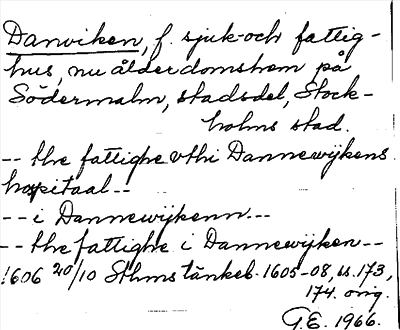 Danviken, f. sjuk- och fattig-
hus, nu ålderdomshem på
Södermalm, stadsdel, Stock-
holms stad.
-- the fattighe vthi Dannewijkens
hospitaal --
-- i Dannewijkenn --
-- the fattighe i Dannewijken --
1606 20/10 Sthms tänkeb. 1605-08, ss. 173,
174. orig.
G.E. 1966.